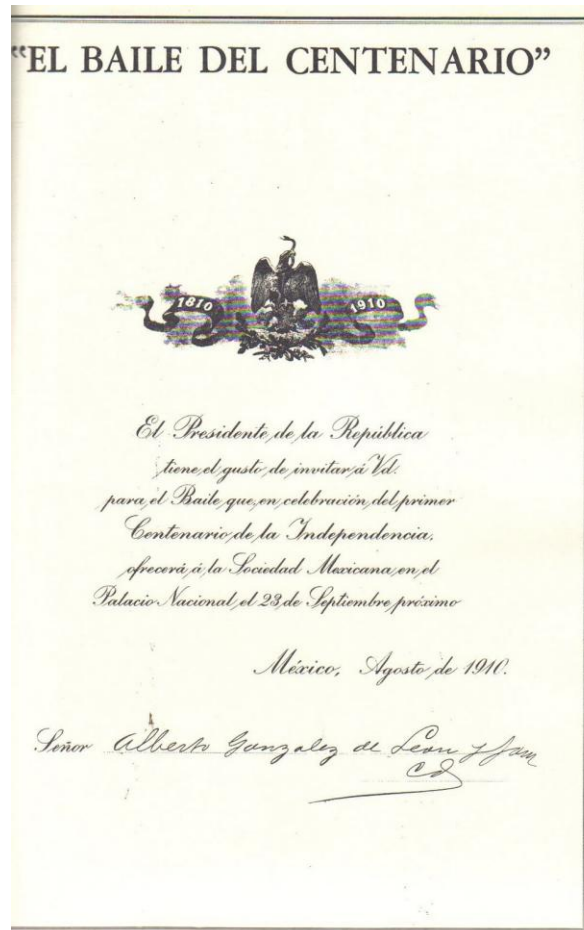 “EL BAILE DEL CENTENARIO”
1810 1910
El Presidente de la República
tiene el gusto de invitar á Vd.
para el Baile que, en celebración del primer
Centenario de la Independencia,
ofrecerá á la Sociedad Mexicana en el
Palacio Nacional, el 23 de Septiembre próximo
México, Agosto de 1910.
Señor Alberto Gonzalez de Leon y fam